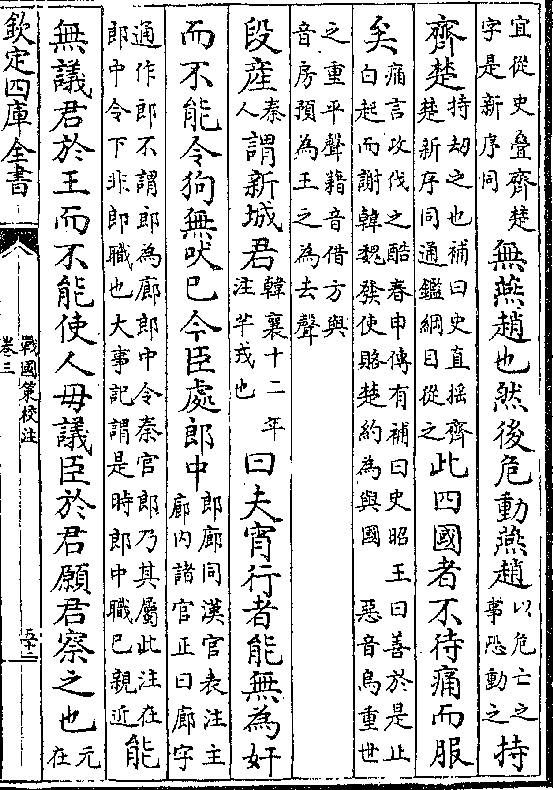 宜從史叠齊楚字是新序同無燕趙也然後危動燕趙以危亡之事恐動之持
齊楚持劫之也補曰史直揺齊楚新序同通鑑綱目從之此四國者不待痛而服
矣痛言攻伐之酷春申傳有補曰史昭王曰善於是止白起而謝韓魏發使賂楚約為與國 惡音烏重世
之重平聲籍音借方與音房預為王之為去聲
段産秦人謂新城君韓襄十二年注芉戎也曰夫宵行者能無為奸
而不能令狗無吠已今臣處郎中郎廊同漢官表注主廊内諸官正曰廊字
通作郎不謂郎為廊郎中令秦官郎乃其屬此注在郎中令下非郎職也大事記謂是時郎中職已親近能
無議君於王而不能使人毋議臣於君願君察之也元在
欽定四庫全書
戰國策校注
卷三
五十二